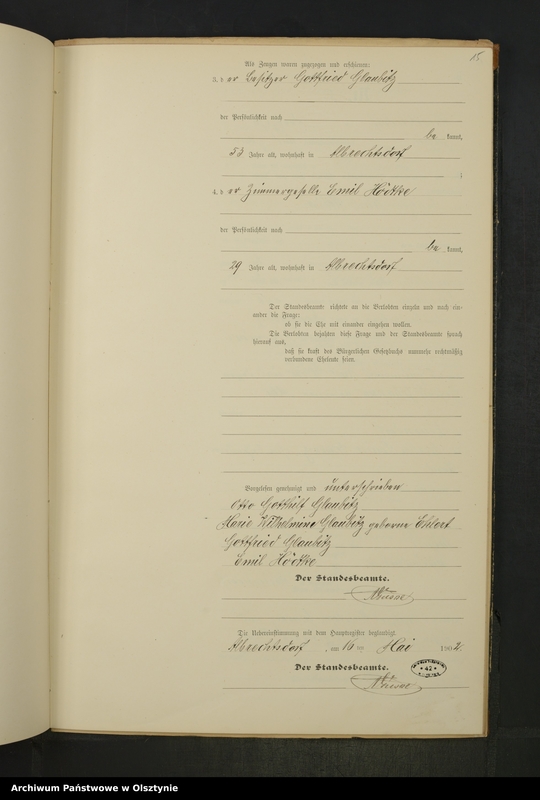 15
Als Zeugen waren zugezogen und erschienen:
3. der Besitzer Gottfried Glaubitz
der Persönlichkeit nach
be kannt,
53 Jahre alt, wohnhaft in Albrechtsdorf
;
4. der Zimmergeselle Emil Hödtke
der Persönlichkeit nach
be kannt,
29 Jahre alt, wohnhaft in Albrechtsdorf
Der Standesbeamte richtete an die Verlobten einzeln und nach ein-
ander die Frage:
ob sie die Ehe mit einander eingehen wollen.
Die Verlobten bejahten diese Frage und der Standesbeamte sprach
hierauf aus,
daß sie kraft des Bürgerlichen Gesetzbuchs nunmehr rechtmäßig
verbundene Eheleute seien.
Vorgelesen, genehmigt und unterschrieben
Otto Gotthilf Glaubitz
Marie Wilhelmine Glaubitz geborene Ehlert
Gottfried Glaubitz
Emil Hödtke
Der Standesbeamte.
Die Uebereinstimmung mit dem Hauptregister beglaubigt.
Albrechtsdorf, am 16 ten Mai 1902.
Der Standesbeamte.
42
Archiwum Państwowe w Olsztynie